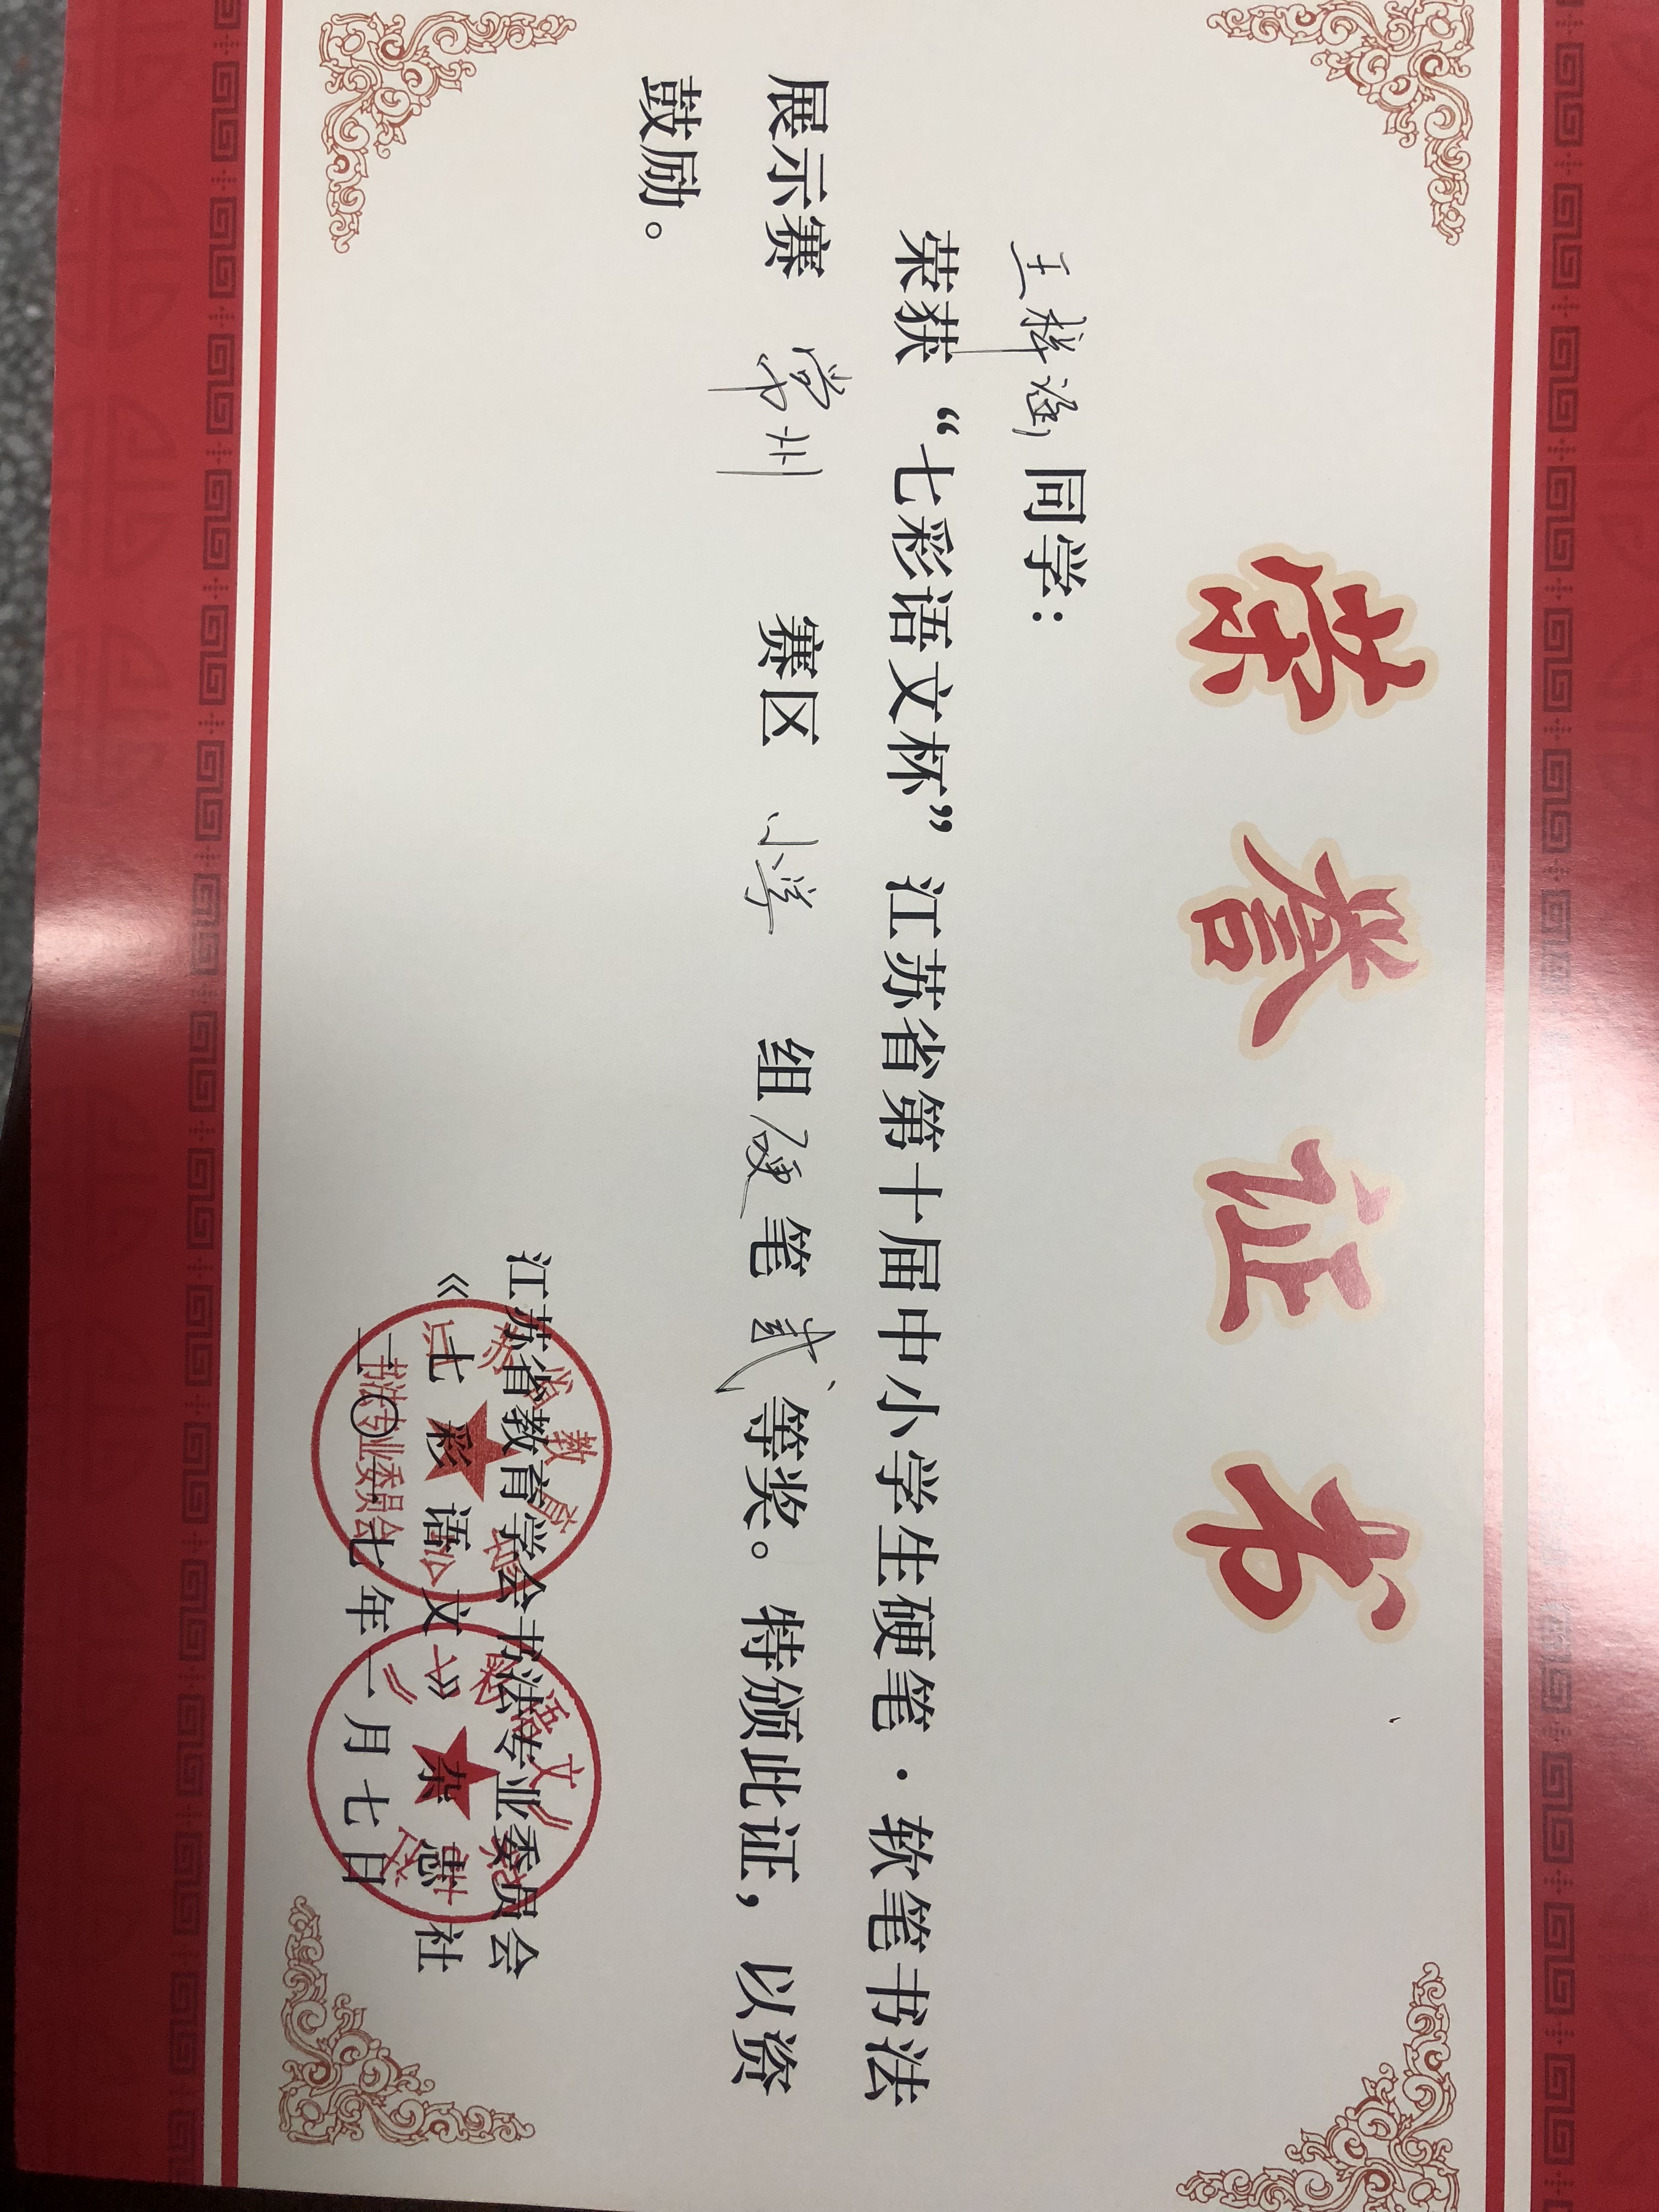 荣誉证书
王梓涵同学：
荣获“七彩语文杯”江苏省第十届中小学生硬笔·软笔书法
展示赛 常州 赛区 小学 组 硬笔 贰等奖。特颁此证，以资
鼓励。
江苏省教育学会书法专业委员会
《七彩语文》杂志社
二〇一七年一月七日